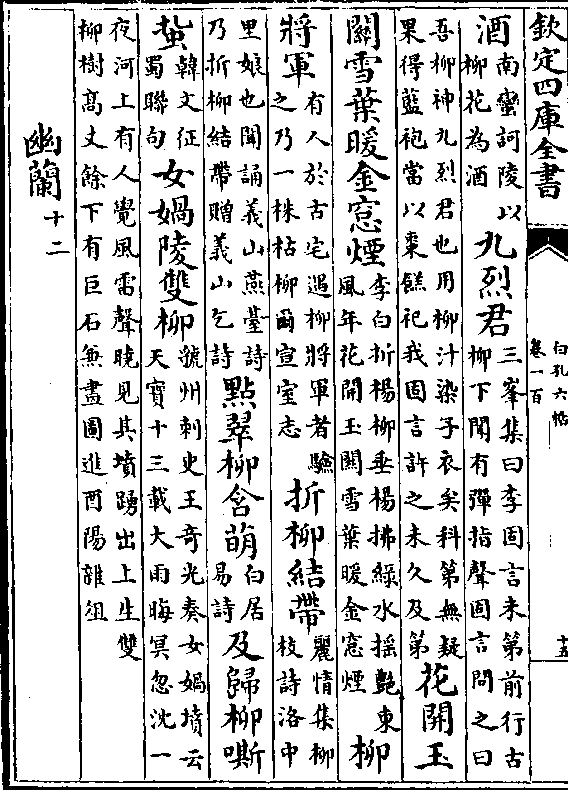 欽定四庫全書
白孔六帖
卷一百
十五
酒南蠻訶陵以柳花為酒九烈君三峯集曰李固言未第前行古柳下聞有彈指聲固言問之曰
吾柳神九烈君也用柳汁染子衣矣科第無疑果得藍袍當以棗餻祀我固言許之未久及第花開玉
關雪葉暖金窓煙李白折楊柳垂楊拂綠水揺艷東風年花開玉關雪葉暖金窓煙柳
將軍有人於古宅遇柳將軍者驗之乃一株枯柳爾宣室志折柳結帶麗情集柳枝詩洛中
里娘也聞誦義山燕臺詩乃折柳結帶贈義山乞詩點翠柳含萌白居易詩及歸柳嘶
蚻韓文征蜀聯句女媧陵雙柳虢州刺史王奇光奏女媧墳云天寶十三載大雨晦冥忽沈一
夜河上有人覺風雷聲曉見其墳踴出上生雙柳樹髙丈餘下有巨石兼畫圖進酉陽雜俎
幽蘭十二